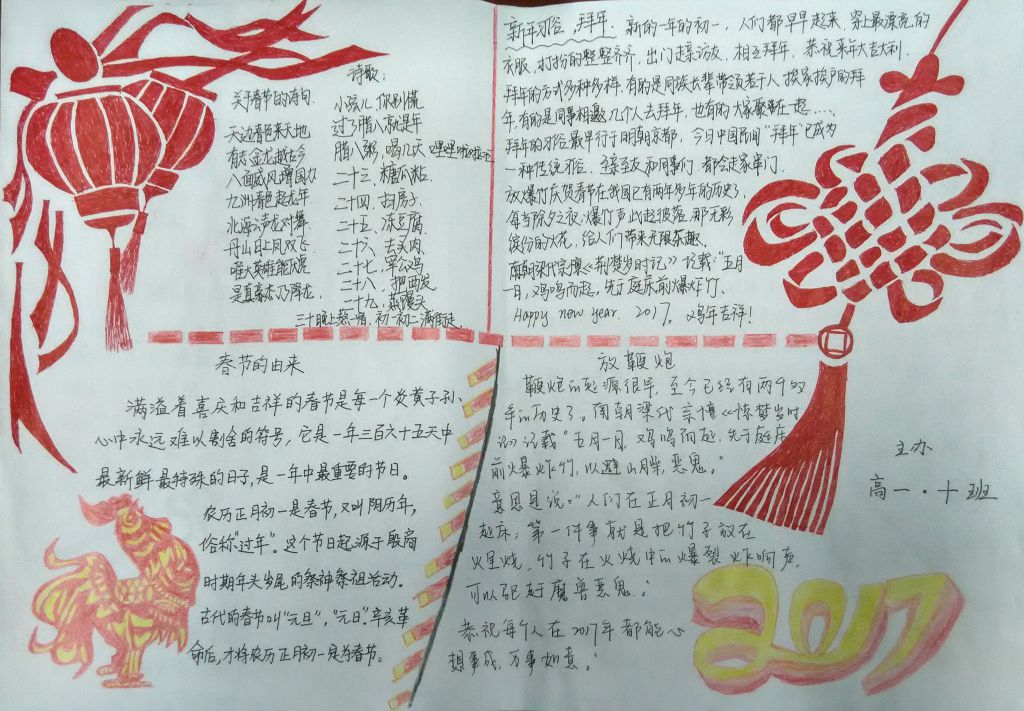 诗歌:
关于春节的诗句.
天边春色来天地
有志金龙越古今
八面威风增国力
九州春色起龙年
北海 龙对舞
丹山日上凤双飞
唯大英雄能伏虎
是真豪杰乃降龙.
小孩儿,你别慌
过了腊八就是年
腊八粥,喝几天,哩哩啦啦
二十三、糖瓜粘.
二十四、扫房子.
二十五、冻豆腐.
二十六、去买肉.
二十七、宰公鸡.
二十八、把面发
二十九、蒸馒头
三十晚上熬一宵、初一初二满街走.
新年习俗,拜年. 新的一年的初一,人们都早早起来,穿上最漂亮的
衣服,打扮的整整齐齐,出门走亲访友,相互拜年,恭祝来年大吉大利.
拜年的方式多种多样,有的是同族长辈带领若干人挨家挨户的拜
年,有的是同事相邀几个人去拜年,也有的大家聚在一起.....
拜年的习俗最早行于明朝京都,今日中国民间"拜年"已成为
一种传统习俗,至亲至友和同事们,都会走家串门.
放爆竹庆贺春节在我国已有两千多年的历史了,
每当除夕之夜,爆竹声此起彼落,那五彩
缤纷的火花,给人们带来无限乐趣.
南朝梁代宗懔《荆楚岁时记》记载:"五月
一日,鸡鸣而起,先于庭前爆炸竹.
Happy new year. 2017。鸡年吉祥!
春节的由来
满溢着喜庆和吉祥的春节是每一个炎黄子孙、
心中永远难以割舍的符号,它是一年三百六十五天中
最新鲜最特殊的日子,是一年中最重要的节日。
农历正月初一是春节,又叫阴历年,
俗称"过年"。这个节日起源于殷商
时期年头岁尾的祭神祭祖活动。
古代的春节叫"元旦","元日",辛亥革
命后,才将农历正月初一是为春节。
放鞭炮
鞭炮的起源很早,至今已经有两个多
年的历史了。南朝梁代宗懔《惊梦岁时
记》记载"五月一日,鸡鸣而起,先于庭
前爆炸竹,以避山 恶鬼。"
意思是说:"人们在正月初一
起床,第一件事就是把竹子放在
火里烧,竹子在火烧中的爆裂炸响声,
可以驱赶魔兽恶鬼。"
恭祝每个人在2017年都能心
想事成,万事如意。"
主办
高一·十班
2017